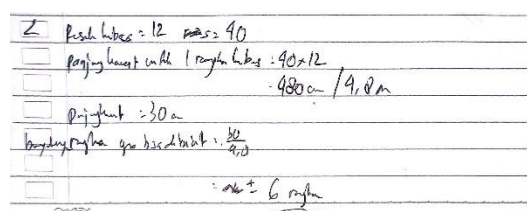 2 Rusuk kubus = 12 s = 40
panjang kawat untuk 1 rangka kubus : 40 x 12
: 480 cm / 4,8 m
Panjang kawat = 30 m
banyaknya rangka yang bisa dibuat = 30/4,8
= 6 rangka